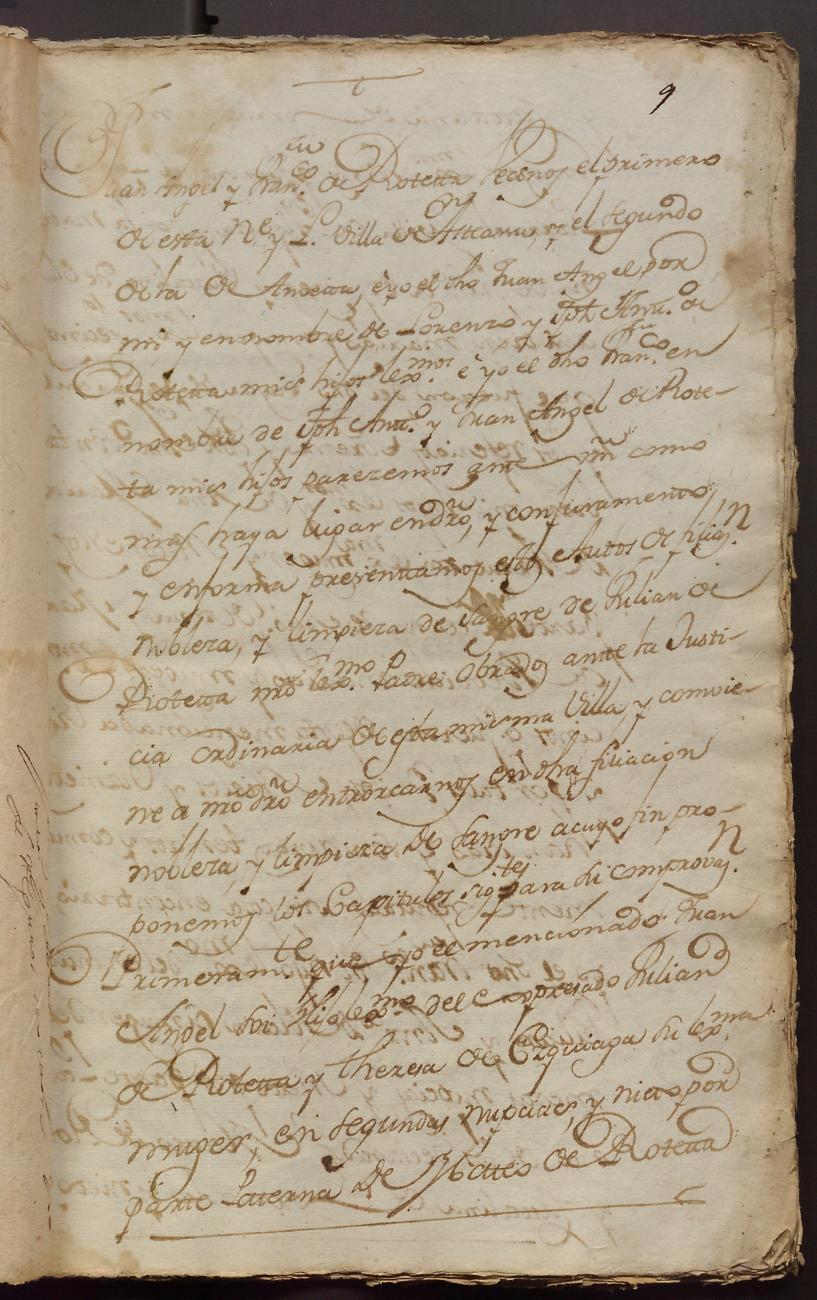 9
Juan Angel y Fran.co de Roteta Vecinos el primero
de esta N.e y L. Villa de y el segundo
de la de Andoain, e yo el dho Juan Angel por
mi y en nombre de Lorenzo y Jph Antt.o de
Roteta mis hijos lex.mos e yo el dho Fran.co en
nombre de Jph Antt.o y Juan Angel de Rote-
ta mis hijos parezemos ante Vm como
mas haya lugar en dro, y con juramento
y en forma presentamos estos Autos de filiaz.n
nobleza, y limpieza de sangre de Julian de
Roteta nro lex.mo Padre obrados ante la Justi-
cia ordinaria de esta misma Villa, y convie-
ne a nro dro entroncarnos en dha filiacion
nobleza, y limpieza de sangre acuyo fin pro-
ponemos los Capitulos sig.tes para su comprovaz.n
Primeram.te que yo el mencionado Juan
Angel soi hijo lex.mo del expresado Julian
de Roteta y Theresa de Ezquiaga su lex.ma
muger, en segundas nupcias, y nieto por
parte Paterna de Mateo de Roteta